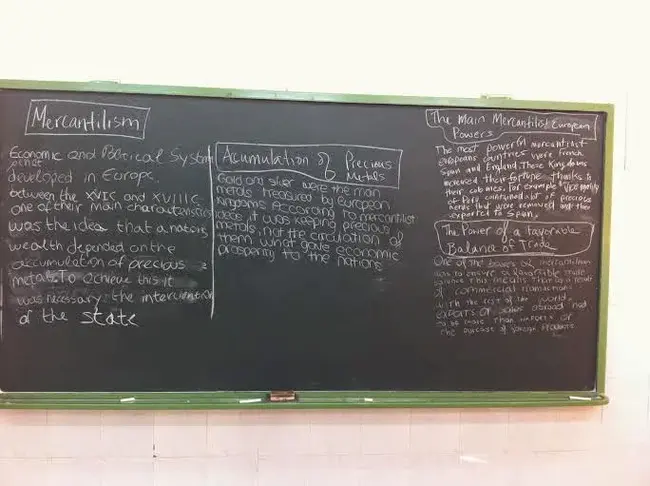 Mercantilism
Economic and Political System
developed in Europe
between the XVIC and XVIIIC
one of their main characteristics
was the idea that a nation's
wealth depended on the
accumulation of precious
metals. To achieve this it
was necessary the intervention
of the state
Acumulation of Precious
Metals
Gold and silver were the main
metals treasured by European
Kingdoms According to mercantilist
ideas, it was keeping precious
metals, not the circulation of
them what gave economic
prosperity to the nations
The Main Mercantilist European
Powers
The most powerful mercantilist
europeans countries were French,
Spain and England. These Kingdoms
their fortune thanks to
their colonies. For example
of Perú a lot of precious
metals that were removed and then
exported to Spain.
The Power of a Favorable
Balance of Trade
One of the of mercantilism
was to ensure a favorable trade
balance this means that as a result
of commercial transactions
with the rest of the world,
exports or sales abroad had
to be more than imports or
the purchase of foreign products.